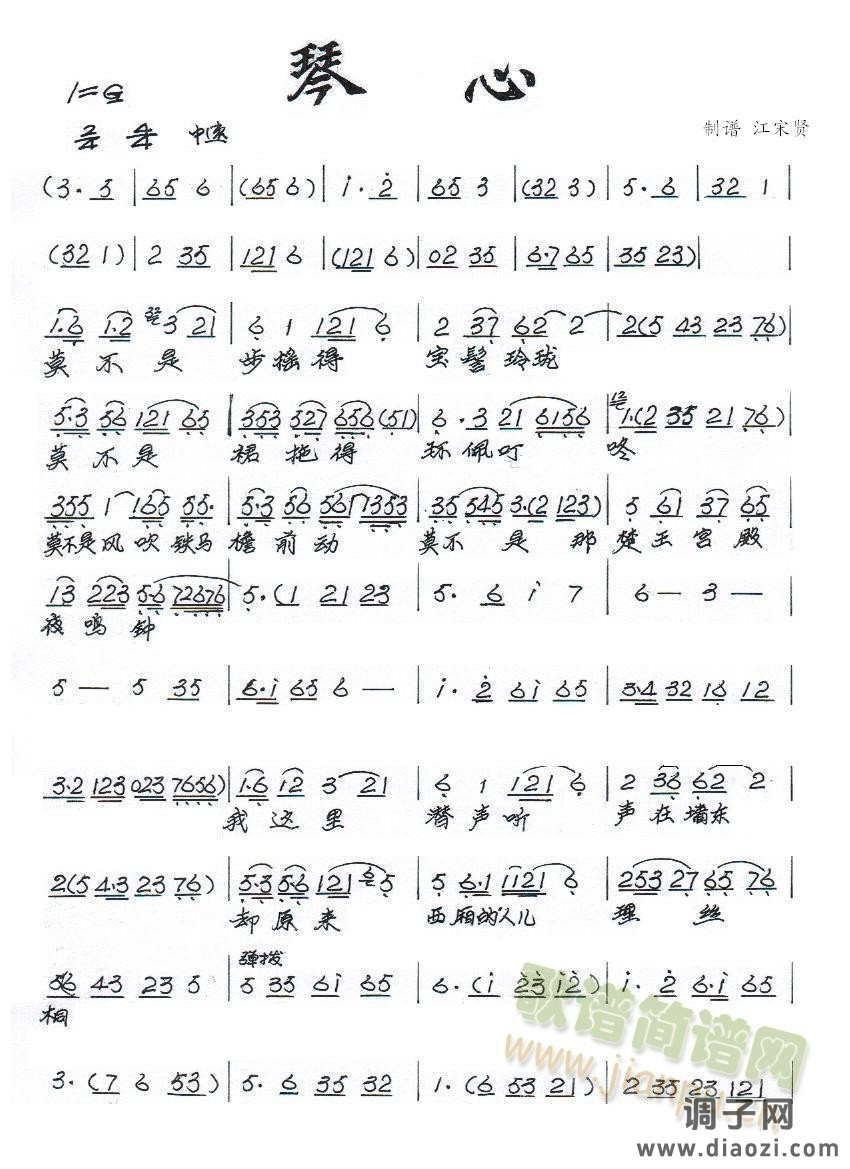 琴 心
1=G
2/4 4/4 中速
制谱 江宋贤
(3· 5 | 65 6 | (65 6) | i· 2 | 65 3 | (32 3) | 5· 6 | 32 1 |
(32 1) | 2 35 | 121 6 | (121 6) | 02 35 | 6·765 | 35 23) |
1·6 1·2 3 21 | 6 1 121 6 | 2 37 62 2 | 2(5 43 23 76) |
莫 不 是 步摇得 宝髻玲珑
5·3 56 121 65 | 353 527 656 (51) | 6· 3 21 6156 | 1·(2 35 21 76) |
莫 不 是 裙拖得 环佩叮 咚
355 1 165 55· | 5·3 56 561 7353 | 35 545 3·(2 123) | 5 61 37 65 |
莫不是风吹铁马 檐前动 莫不是那 楚王宫殿
13 223 5·6 72676 | 5·(1 21 23 | 5· 6 i 7 | 6 — 3 — |
夜鸣钟
5 — 5 35 | 6·i 65 6 — | i· 2 6i 65 | 3·4 32 16 12 |
3·2 123 023 7656) | 1·6 12 3 21 | 6 1 121 6 | 2 36 62 2 |
我这里 潜声听 声在墙东
2(5 4·3 23 76) | 5·3 5·6 121 5 | 5 6·1 1121 6 | 253 27 65 76 |
却原来 西厢的人儿 理 丝
弹拨
56 43 23 5 | 5 35 6i 65 | 6·(i 23 i2) | i· 2 6·i 65 |
桐
3·(7 6 53) | 5· 6 35 32 | 1·(6 53 21) | 2 35 23 121 |
歌谱简谱网
www.jianpu.cn
调子网
www.diaozi.com